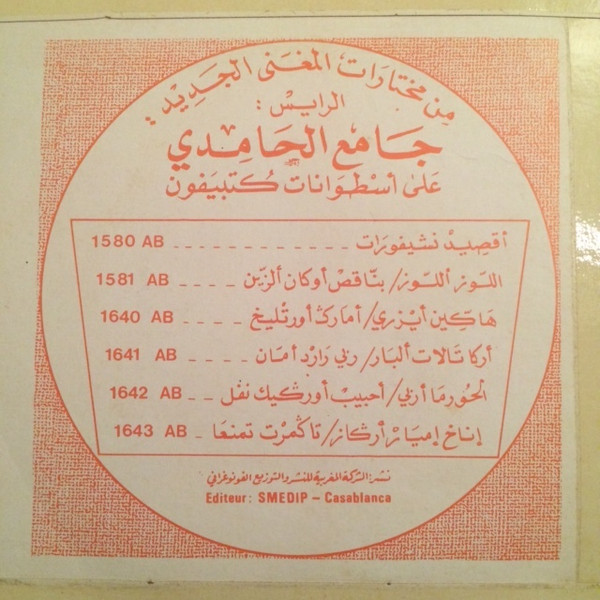 من مختارات المغنى الجديد :
الرايس :
جامع الحامدي
على أسطوانات كتبيفون
أقصيد نشيفورات - - - - - - - - - - - - 1580 AB
اللوز أللوز/بناقص أوكان ألزين - - - - 1581 AB
هاكين أيزري/أمارك أورتليخ - - - - 1640 AB
أركا تالات ألبار/ربي رازد أمان - - - - - 1641 AB
الحورما أربي/أحبيب أورڭيك نفل - - 1642 AB
إناخ إميار أرڭاز/تاڭمرت تمنعا - 1643 AB
نشر: الشركة المغربية للنشر والتوزيع الفونوغرافي
Editeur: SMEDIP – Casablanca